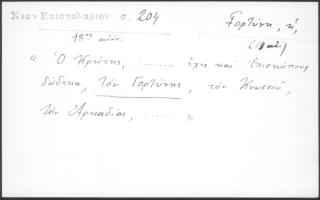 Νεον Επιστολαριον σ. 204
Γορτύνη, ἡ,
18ος αἰών.
(18 αἰ.)
" Ὁ Κρήτης, ......... ἔχει καὶ Ἐπισκόπους
δώδεκα, τὸν Γορτύνης, τὸν Κνωσσοῦ,
τὸν Ἀρκαδίας, ........ "